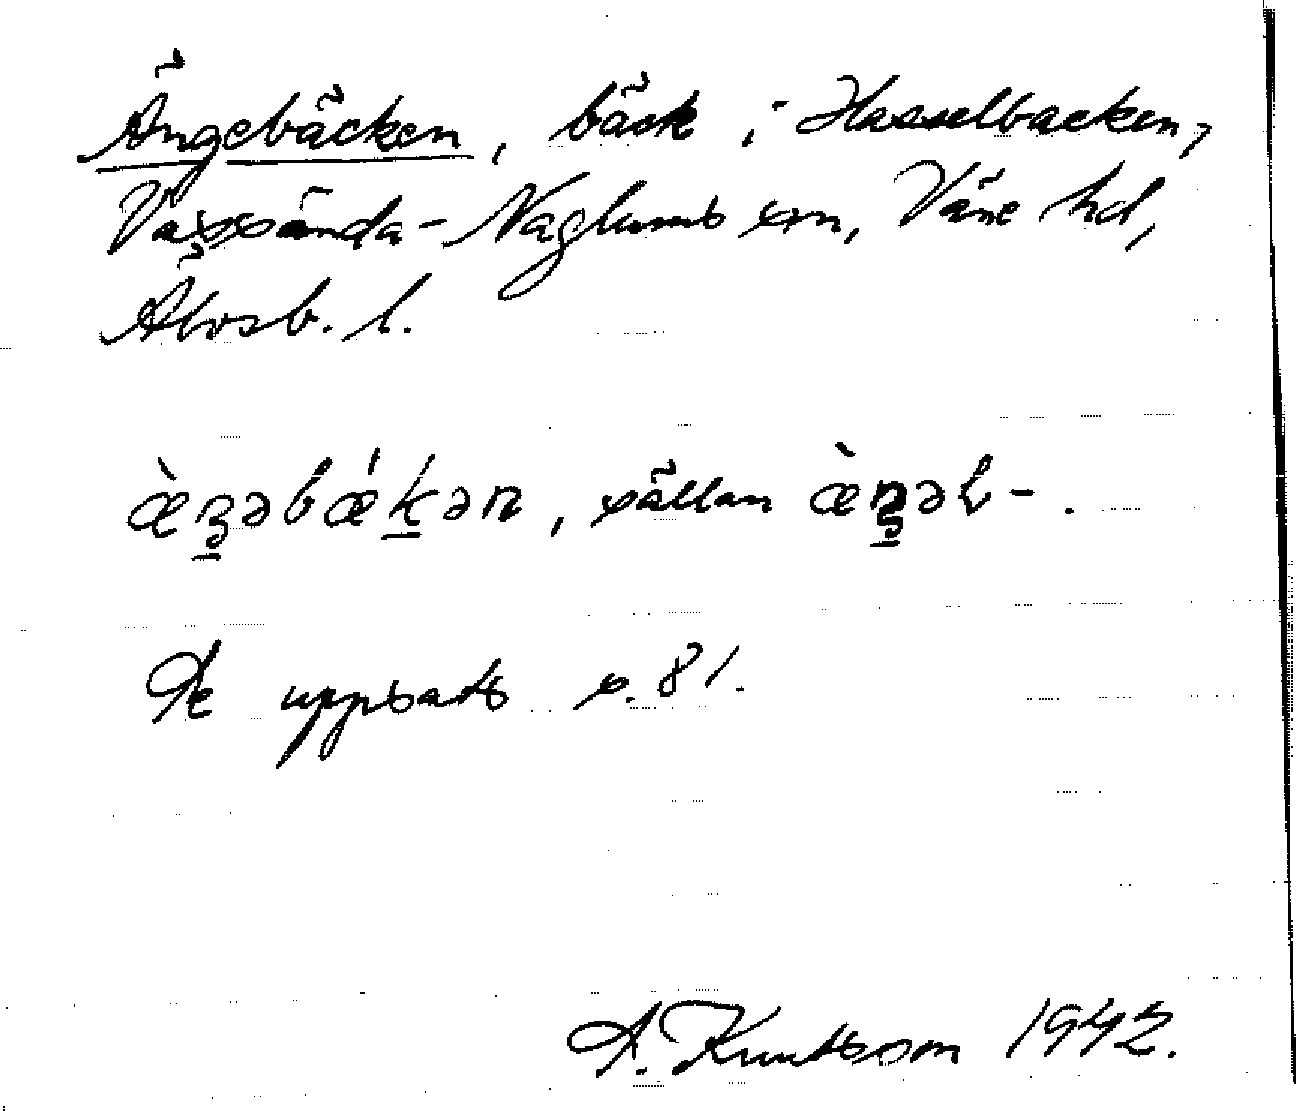 Ängebäcken, bäck i Hasselbacken,
Vassända-Naglums sn, Väne hd,
Älvsb. l.
æ̀ŋəbǽkən, sällan æ̀ŋəb-.
Se uppsats s. 81.
A. Knutsson 1942.